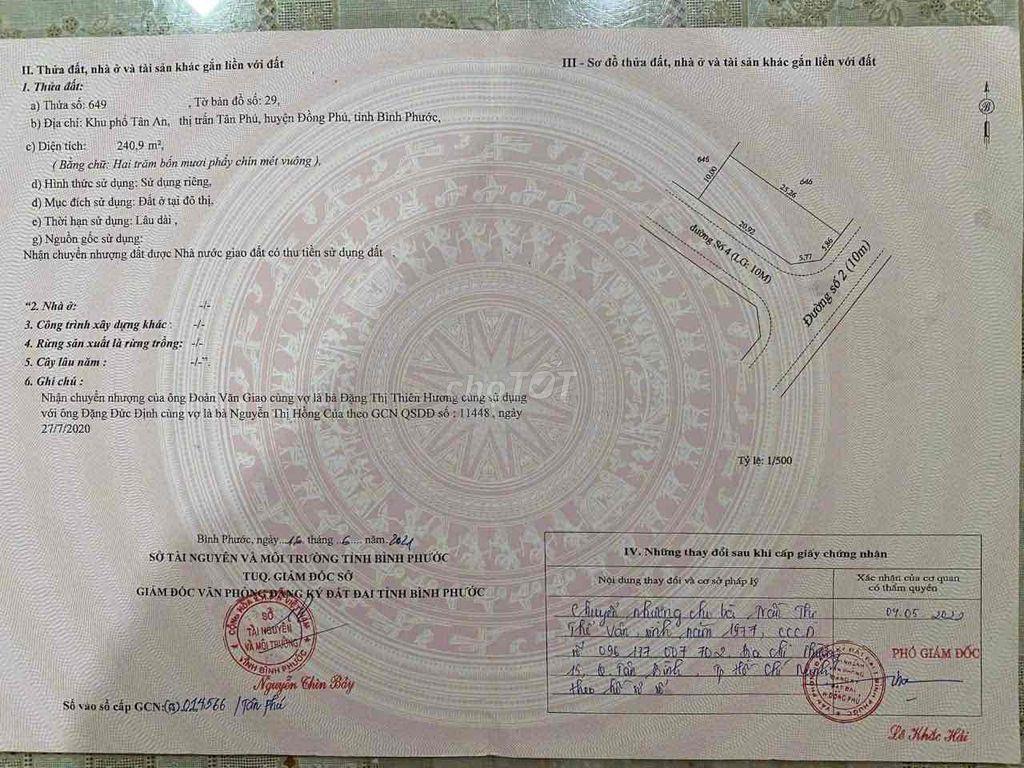 II. Thửa đất, nhà ở và tài sản khác gắn liền với đất
1. Thửa đất:
a) Thửa số: 649 , Tờ bản đồ số: 29,
b) Địa chỉ: Khu phố Tân An, thị trấn Tân Phú, huyện Đồng Phú, tỉnh Bình Phước,
c) Diện tích: 240,9 m²,
( Bằng chữ: Hai trăm bốn mươi phẩy chín mét vuông ),
d) Hình thức sử dụng: Sử dụng riêng,
đ) Mục đích sử dụng: Đất ở tại đô thị,
e) Thời hạn sử dụng: Lâu dài ,
g) Nguồn gốc sử dụng:
Nhận chuyển nhượng đất được Nhà nước giao đất có thu tiền sử dụng đất .
"2. Nhà ở: -/-
3. Công trình xây dựng khác : -/-
4. Rừng sản xuất là rừng trồng: -/-
5. Cây lâu năm : -/-".
6. Ghi chú :
Nhận chuyển nhượng của ông Đoàn Văn Giao cùng vợ là bà Đặng Thị Thiên Hương cùng sử dụng
với ông Đặng Đức Định cùng vợ là bà Nguyễn Thị Hồng Của theo GCN QSDĐ số : 11448 , ngày
27/7/2020
Bình Phước, ngày 16 tháng 6 năm 2021
SỞ TÀI NGUYÊN VÀ MÔI TRƯỜNG TỈNH BÌNH PHƯỚC
TUQ. GIÁM ĐỐC SỞ
GIÁM ĐỐC VĂN PHÒNG ĐĂNG KÝ ĐẤT ĐAI TỈNH BÌNH PHƯỚC
SỞ
TÀI NGUYÊN
VÀ MÔI TRƯỜNG
TỈNH BÌNH PHƯỚC
Nguyễn Thìn Bảy
Số vào sổ cấp GCN: /Tân Phú
III - Sơ đồ thửa đất, nhà ở và tài sản khác gắn liền với đất
B
645
10.00
646
25.26
20.92
5.77
5.86
đường Số 4 (LG: 10M)
Đường số 2 (10m)
Tỷ lệ: 1/500
chợTỐT
IV. Những thay đổi sau khi cấp giấy chứng nhận
Nội dung thay đổi và cơ sở pháp lý
Xác nhận của cơ quan
có thẩm quyền
Chuyển nhượng cho bà Trần Thị
Thế Vân, sinh năm 1977, CCCD
số 096 177 007 702 Địa chỉ Phường
15, Q Tân Bình, Tp Hồ Chí Minh
theo hồ sơ số
PHÓ GIÁM ĐỐC
Lê Khắc Hải